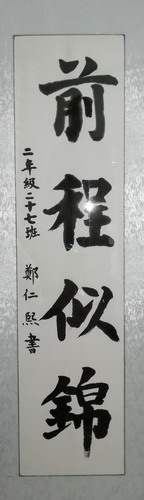 前程似錦
二年級二十七班 鄭仁熙書